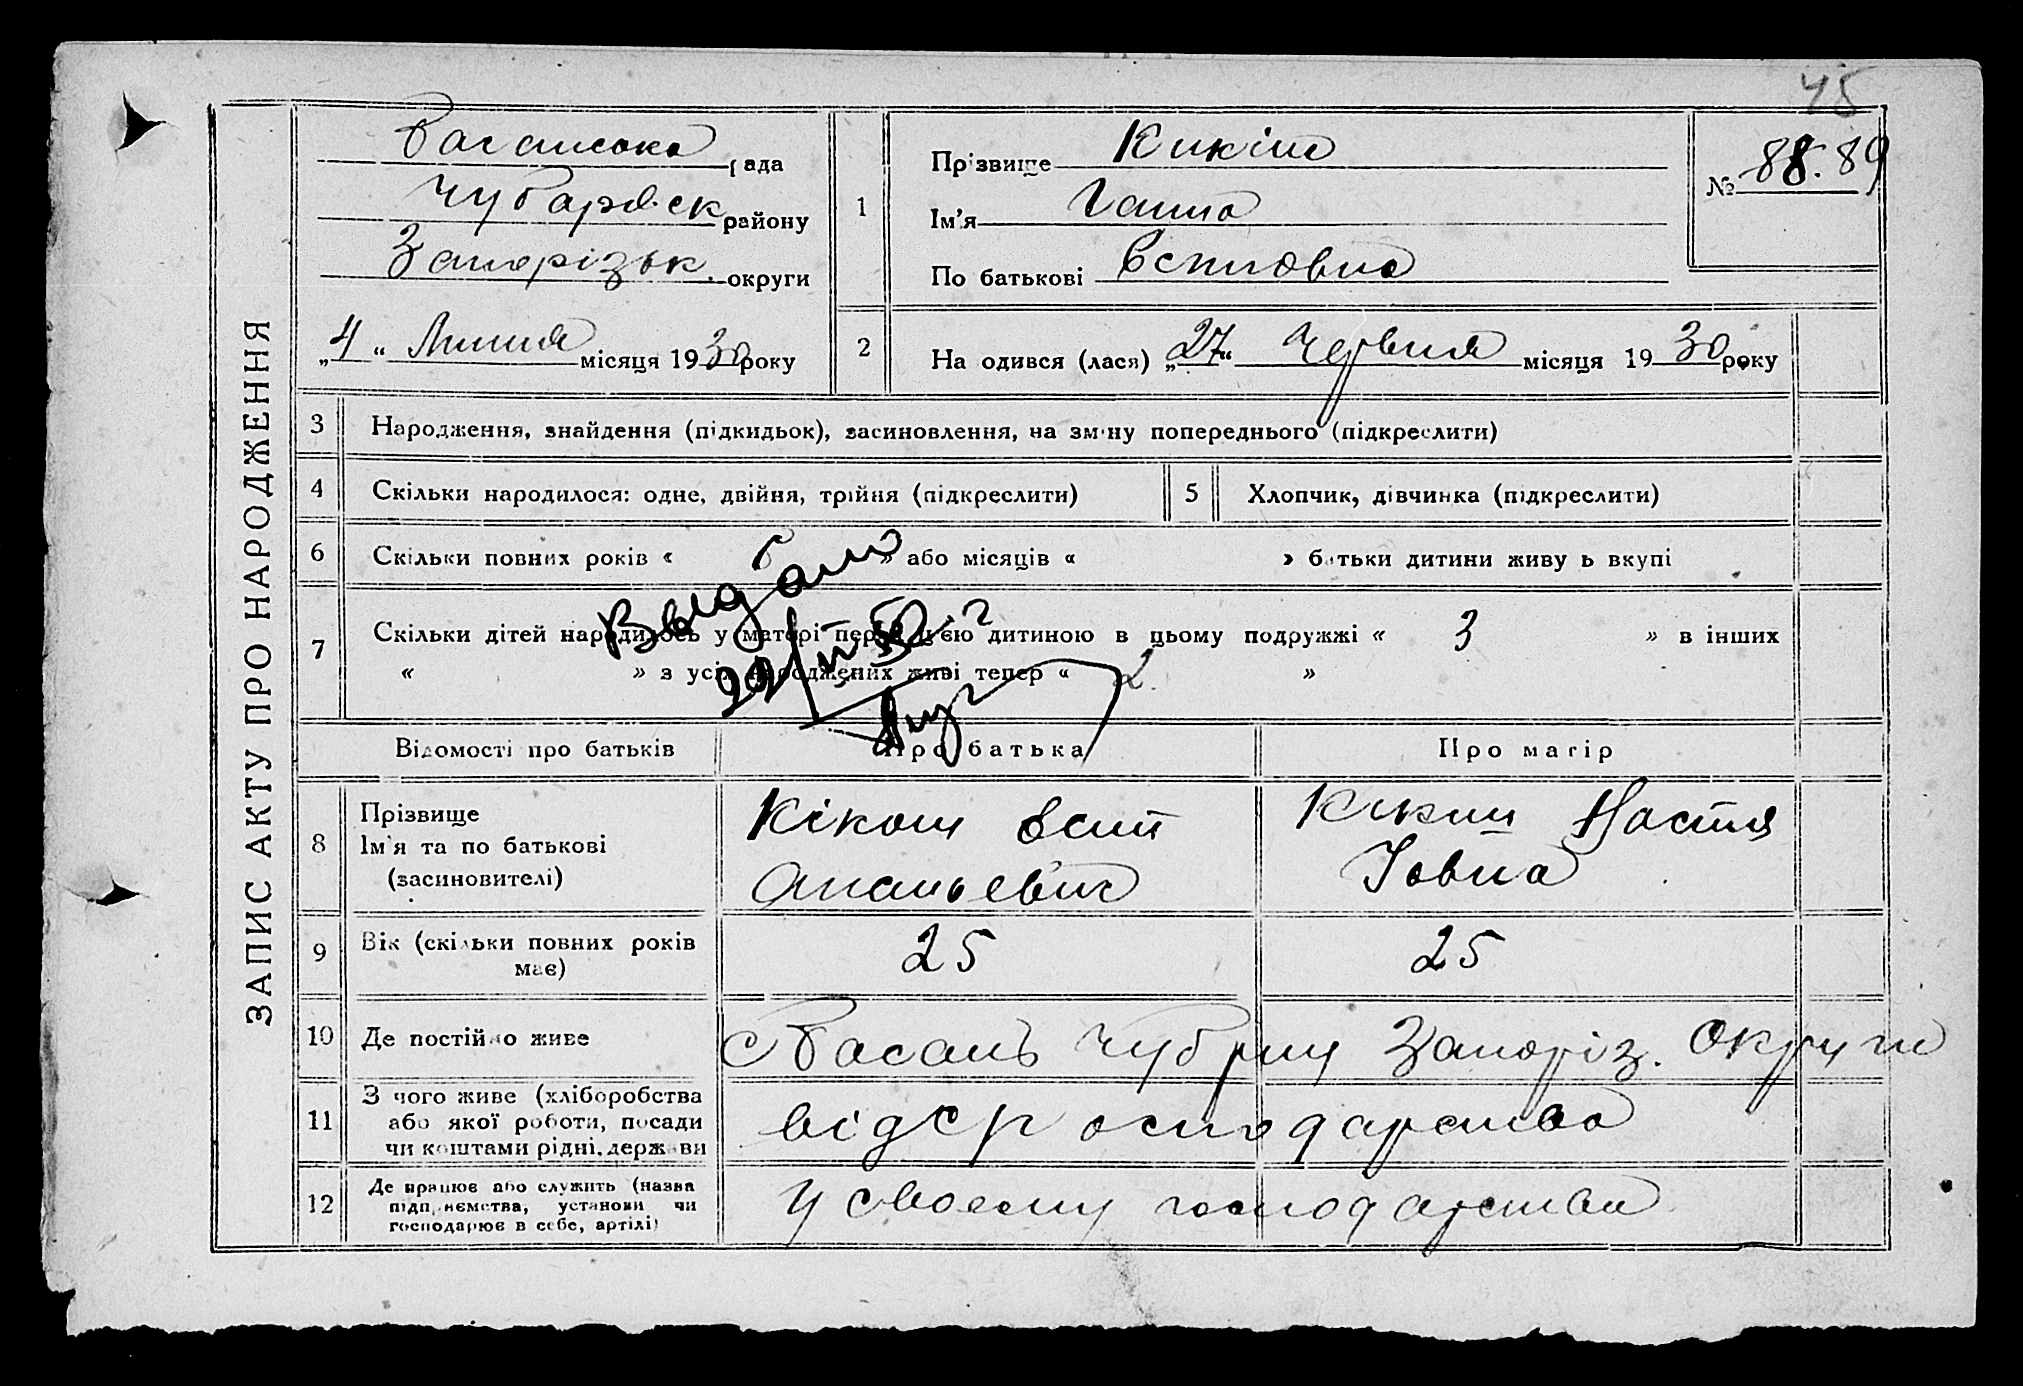 45
Басанська рада
Чубарівськ району
Запорізьк. округи
„4“ Липня місяця 1930 року
1
Прізвище Кикіш
Ім'я Ганна
По батькові Єсиповна
№ 88.89
2
На одився (лася) „27“ Червня місяця 1930 року
ЗАПИС АКТУ ПРО НАРОДЖЕННЯ
3 Народження, знайдення (підкидьок), засиновлення, на зміну попереднього (підкреслити)
4 Скільки народилося: одне, двійня, трійня (підкреслити) 5 Хлопчик, дівчинка (підкреслити)
6 Скільки повних років « 6 » або місяців « » батьки дитини живу ь вкупі
7 Скільки дітей народилось у матері перед цією дитиною в цьому подружжі « 3 » в інших
« » з усіх народжених живі тепер « 2 »
Выдано
Відомості про батьків Про батька Про матір
8 Прізвище
Ім'я та по батькові
(засиновителі)
Кікош Єсип
Ананьевич
Кикиш Настя
Іовна
9 Вік (скільки повних років має) 25 25
10 Де постійно живе с Басань Чубр Запоріз. Округи
11 З чого живе (хліборобства
або якої роботи, посади
чи коштами рідні, держави
від с р господарства
12 Де працює або служить (назва
підприємства, установи чи
господарює в себе, артілі)
У своему господарстви